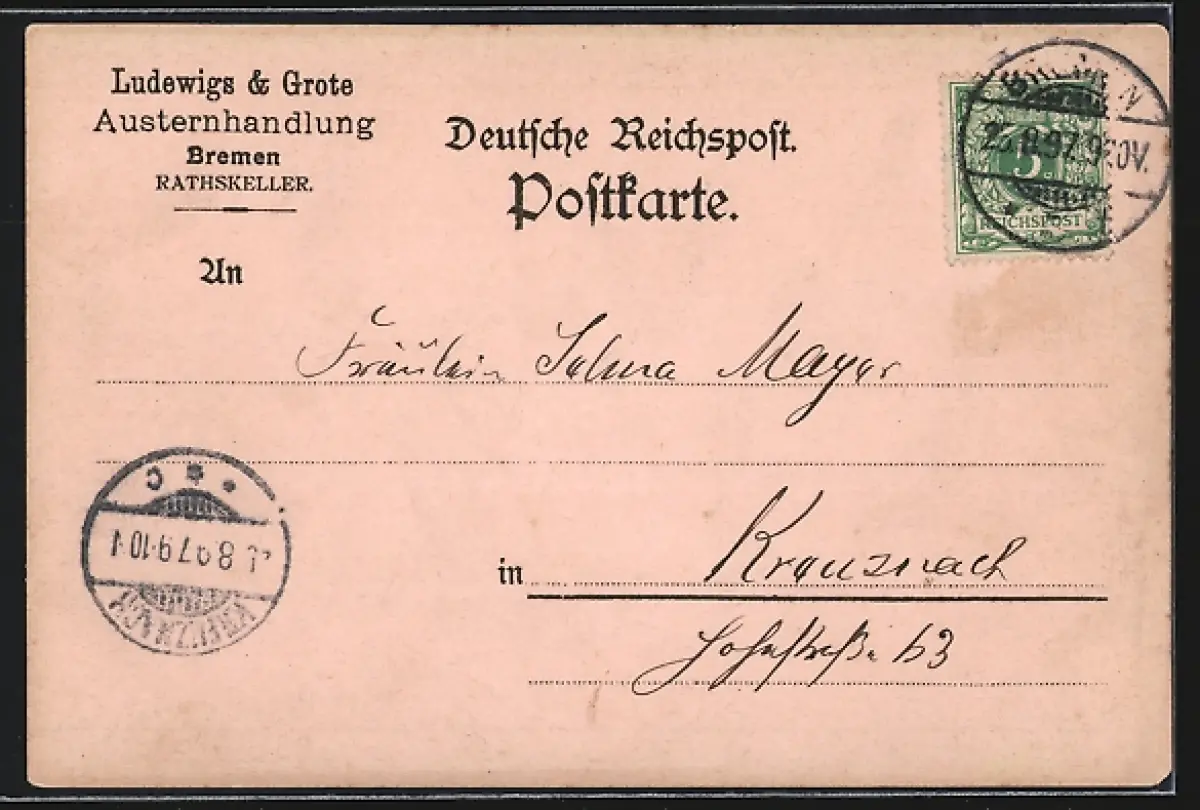 Ludewigs & Grote
Austernhandlung
Bremen
RATHSKELLER.
Deutsche Reichspost.
Postkarte.
BREMEN
8.97.9
5
REICHSPOST
An
Fräulein Selma Mayer
in Kreuznach
63
8.97.9-10
KREUZNACH
C